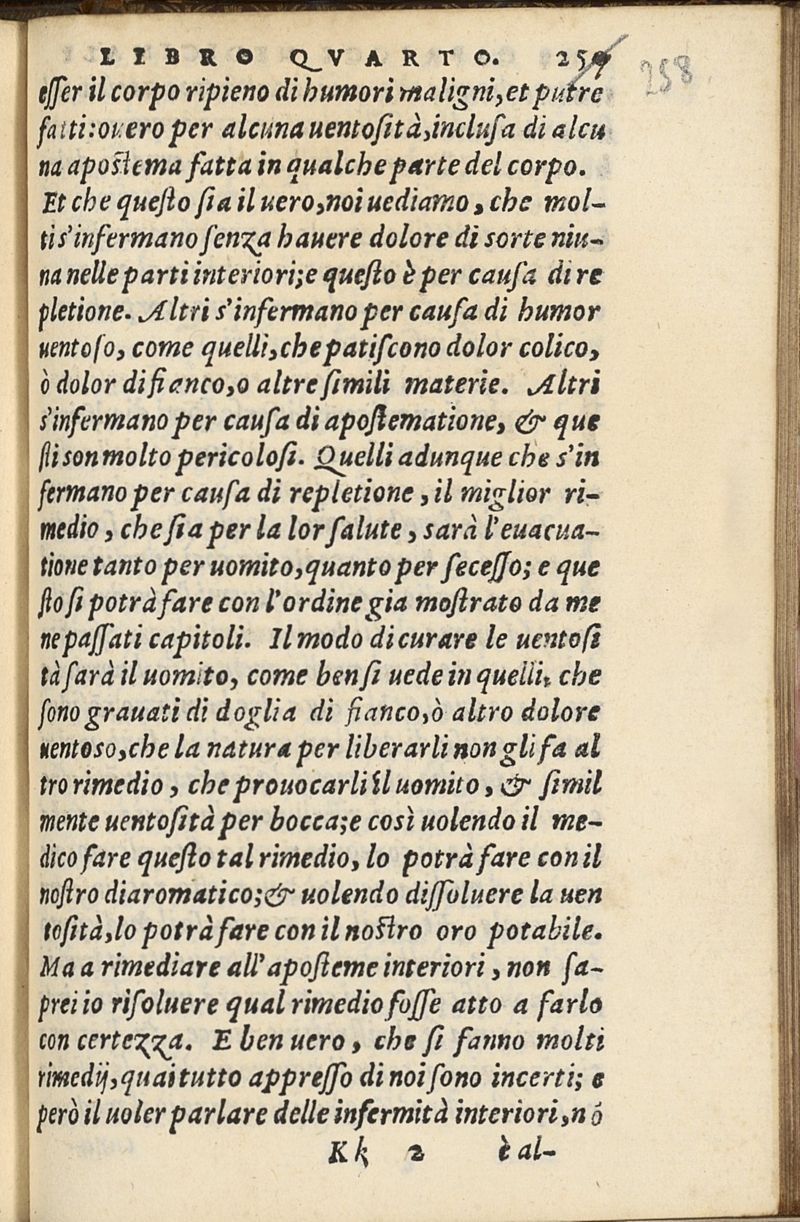 LIBRO QVARTO. 259
258
esser il corpo ripieno di humori maligni, et putre
fatti: ouero per alcuna uentosità, inclusa di alcu
na apostema fatta in qualche parte del corpo.
Et che questo sia il uero, noi uediamo, che mol-
ti s'infermano senza hauere dolore di sorte niu-
na nelle parti interiori; e questo è per causa di re
pletione. Altri s'infermano per causa di humor
uentoso, come quelli, che patiscono dolor colico,
ò dolor di fianco, o altre simili materie. Altri
s'infermano per causa di apostematione, & que
sti son molto pericolosi. Quelli adunque che s'in
fermano per causa di repletione, il miglior ri-
medio, che sia per la lor salute, sarà l'euacua-
tione tanto per uomito, quanto per secesso; e que
sto si potrà fare con l'ordine gia mostrato da me
ne passati capitoli. Il modo di curare le uentosi
tà sarà il uomito, come ben si uede in quelli, che
sono grauati di doglia di fianco, ò altro dolore
uentoso, che la natura per liberarli non gli fa al
tro rimedio, che prouocarli il uomito, & simil
mente uentosità per bocca; e così uolendo il me-
dico fare questo tal rimedio, lo potrà fare con il
nostro diaromatico; & uolendo dissoluere la uen
tosità, lo potrà fare con il nostro oro potabile.
Ma a rimediare all'aposteme interiori, non sa-
prei io risoluere qual rimedio fosse atto a farlo
con certezza. E ben uero, che si fanno molti
rimedij, quai tutto appresso di noi sono incerti; e
però il uoler parlare delle infermità interiori, nõ
Kk 2 è al-